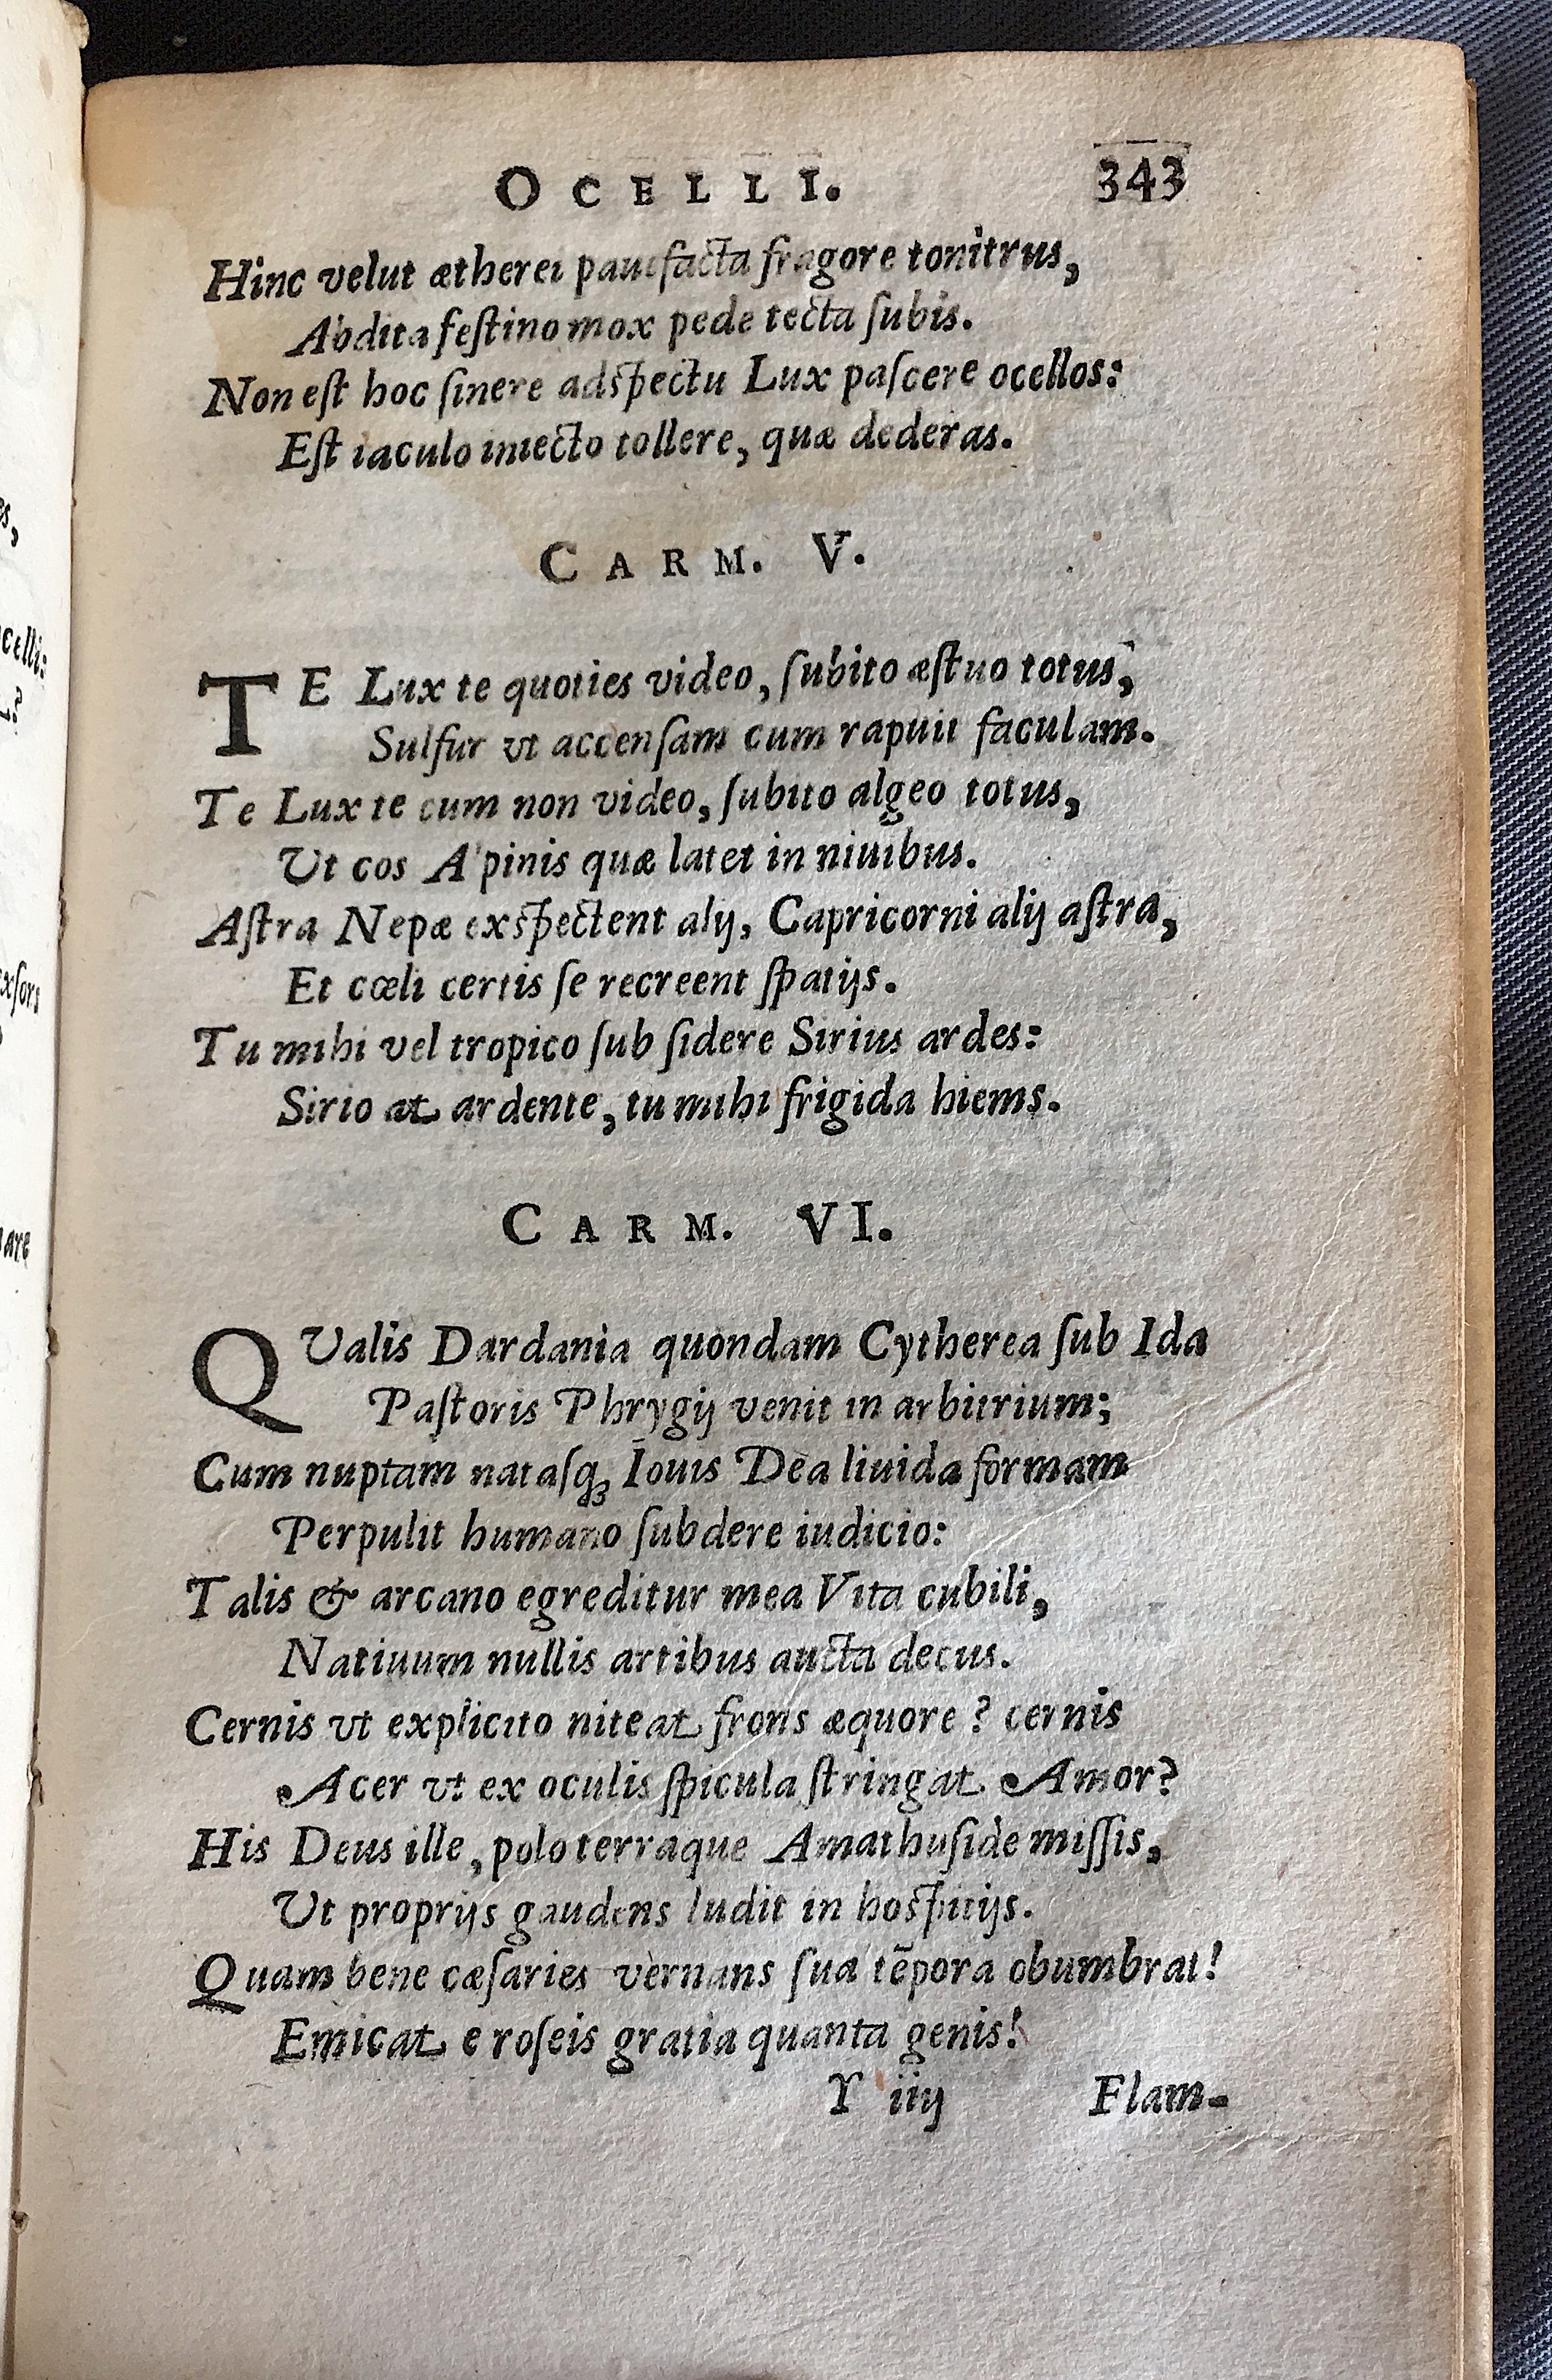 OCELLI. 343
Hinc velut ætherei pauefacta fragore tonitrus,
Abdita feſtino mox pede tecta ſubis.
Non eſt hoc ſinere adſpectu Lux paſcere ocellos:
Eſt iaculo iniecto tollere, quæ dederas.
CARM. V.
TE Lux te quoties video, ſubito æſtuo totus,
Sulfur vt accenſam cum rapuit faculam.
Te Lux te cum non video, ſubito algeo totus,
Ut cos Alpinis quæ latet in niuibus.
Aſtra Nepæ exſpectent alij, Capricorni alij aſtra,
Et cœli certis ſe recreent ſpatijs.
Tu mihi vel tropico ſub ſidere Sirius ardes:
Sirio at ardente, tu mihi frigida hiems.
CARM. VI.
QValis Dardania quondam Cytherea ſub Ida
Paſtoris Phrygij venit in arbitrium;
Cum nuptam nataſq; Iouis Dea liuida formam
Perpulit humano ſubdere iudicio:
Talis & arcano egreditur mea Vita cubili,
Natiuum nullis artibus aucta decus.
Cernis vt explicito niteat frons æquore? cernis
Acer vt ex oculis ſpicula ſtringat Amor?
His Deus ille, polo terraque Amathuſide miſſis,
Ut proprijs gaudens ludit in hoſpitijs.
Quam bene cæſaries vernans ſua tēpora obumbrat!
Emicat e roſeis gratia quanta genis!
Y iiij Flam-